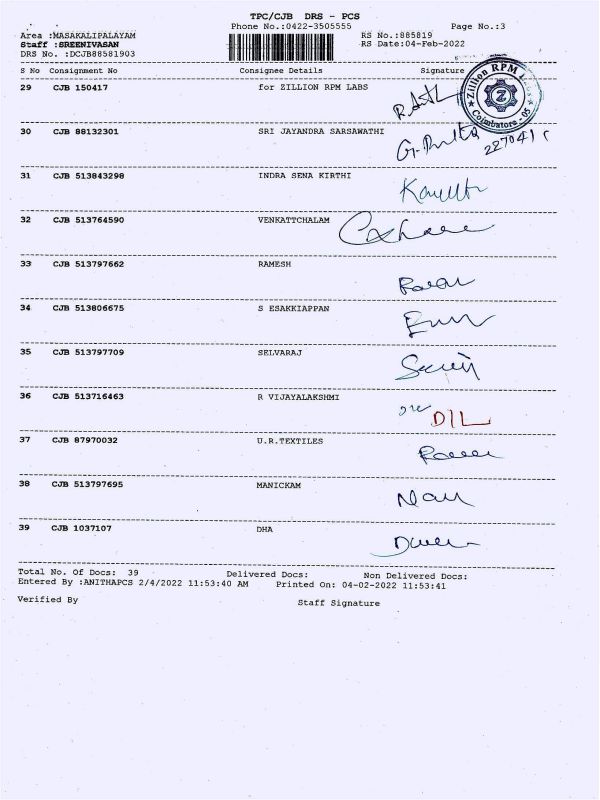 TPC/CJB DRS - PCS
Phone No.:0422-3505555 Page No.:3
Area :MASAKALIPALAYAM RS No.:885819
Staff :SREENIVASAN RS Date:04-Feb-2022
DRS No. :DCJB88581903
S No Consignment No Consignee Details Signature
29 CJB 150417 for ZILLION RPM LABS
Zillion RPM Labs
Z
Coimbatore - 05
30 CJB 88132301 SRI JAYANDRA SARSAWATHI
31 CJB 513843298 INDRA SENA KIRTHI
32 CJB 513764590 VENKATTCHALAM
33 CJB 513797662 RAMESH
34 CJB 513806675 S ESAKKIAPPAN
35 CJB 513797709 SELVARAJ
36 CJB 513716463 R VIJAYALAKSHMI
DIL
37 CJB 87970032 U.R.TEXTILES
38 CJB 513797695 MANICKAM
39 CJB 1037107 DHA
Total No. Of Docs: 39 Delivered Docs: Non Delivered Docs:
Entered By :ANITHAPCS 2/4/2022 11:53:40 AM Printed On: 04-02-2022 11:53:41
Verified By Staff Signature